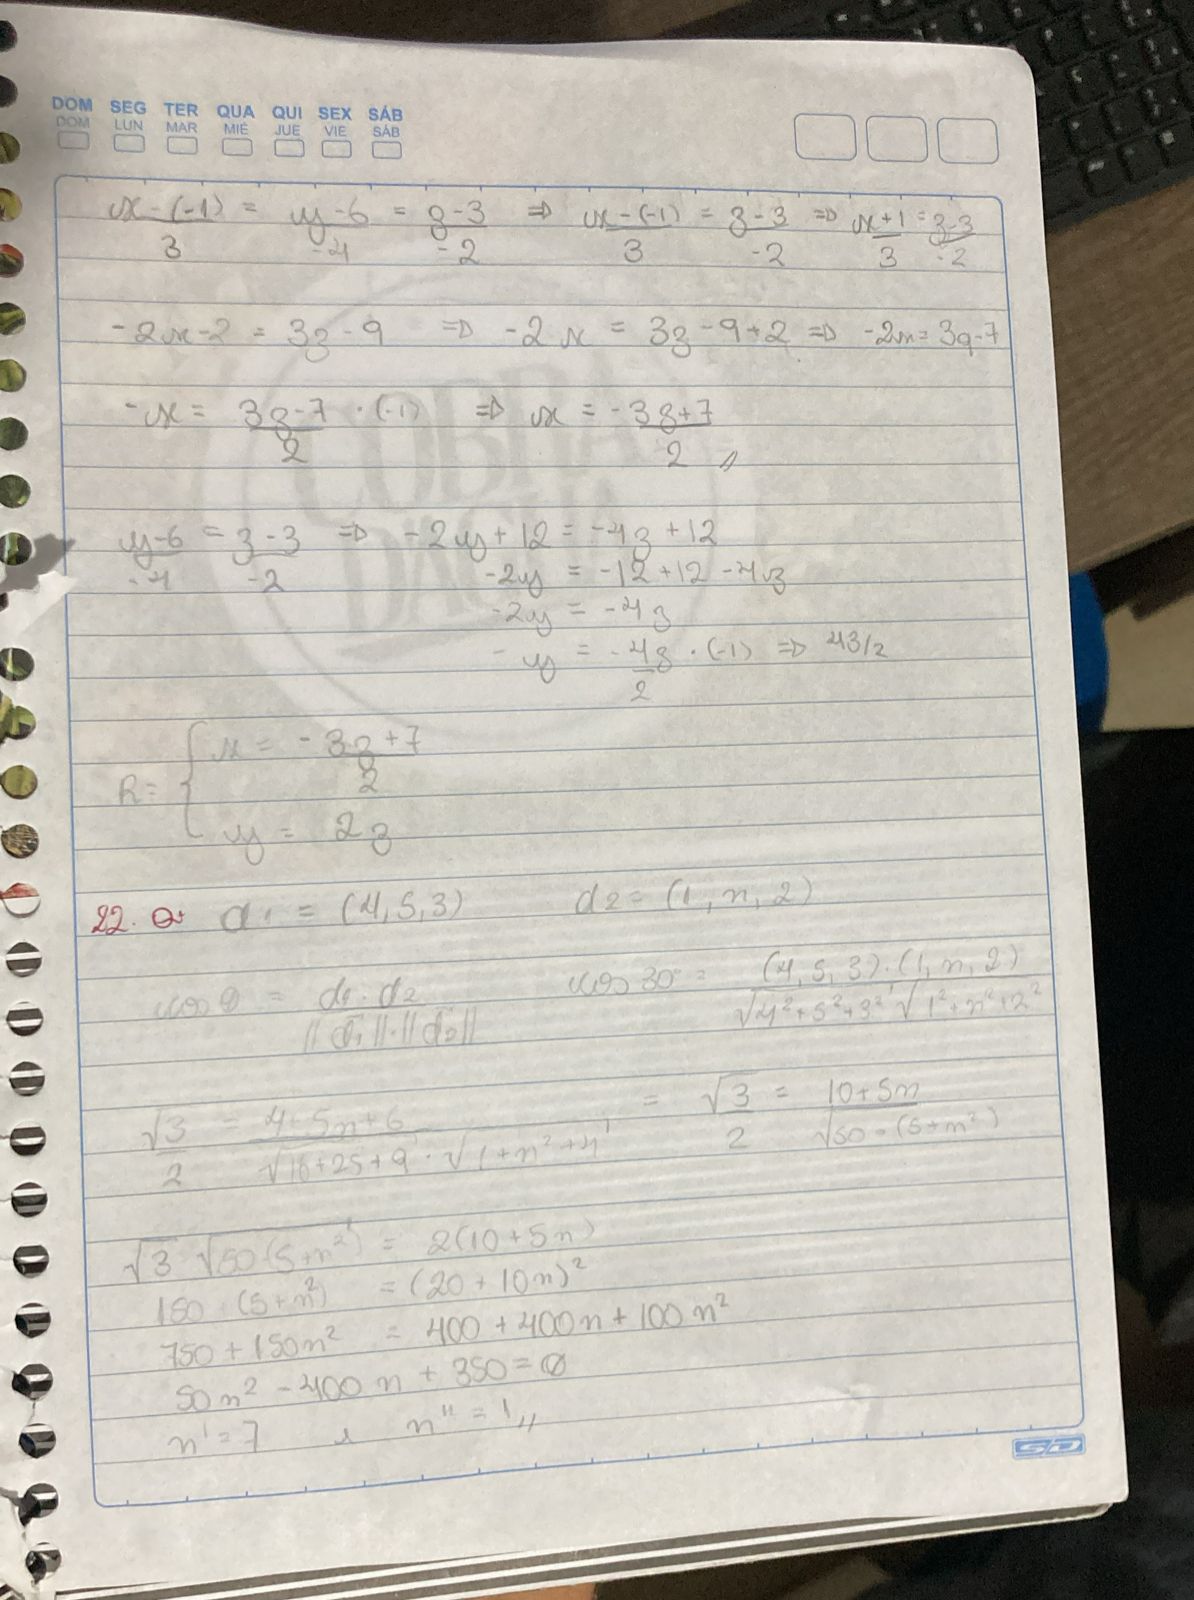 DOM SEG TER QUA QUI SEX SÁB
DOM LUN MAR MIÉ JUE VIE SÁB
x-(-1)/3 = y-6/-4 = z-3/-2 ⇒ x-(-1)/3 = z-3/-2 ⇒ x+1/3 = z-3/-2
-2x-2 = 3z-9 ⇒ -2x = 3z-9+2 ⇒ -2x = 3z-7
-x = 3z-7/2 · (-1) ⇒ x = -3z+7/2 //
y-6/-4 = z-3/-2 ⇒ -2y+12 = -4z+12
-2y = -12+12-4z
-2y = -4z
-y = -4z/2 · (-1) ⇒ 4z/2
R = { x = -3z+7/2
y = 2z
22. a d1 = (4,5,3) d2 = (1,n,2)
cos θ = d1·d2/||d1||·||d2|| cos 30° = (4,5,3)·(1,n,2)/√4²+5²+3² √1²+n²+2²
√3/2 = 4+5n+6/√16+25+9 · √1+n²+4 = √3/2 = 10+5n/√50·(5+n²)
√3·√50(5+n²) = 2(10+5n)
150·(5+n²) = (20+10n)²
750+150n² = 400+400n+100n²
50n²-400n+350=0
n'=7 e n''=1 //
COBRA D'AGUA
SD